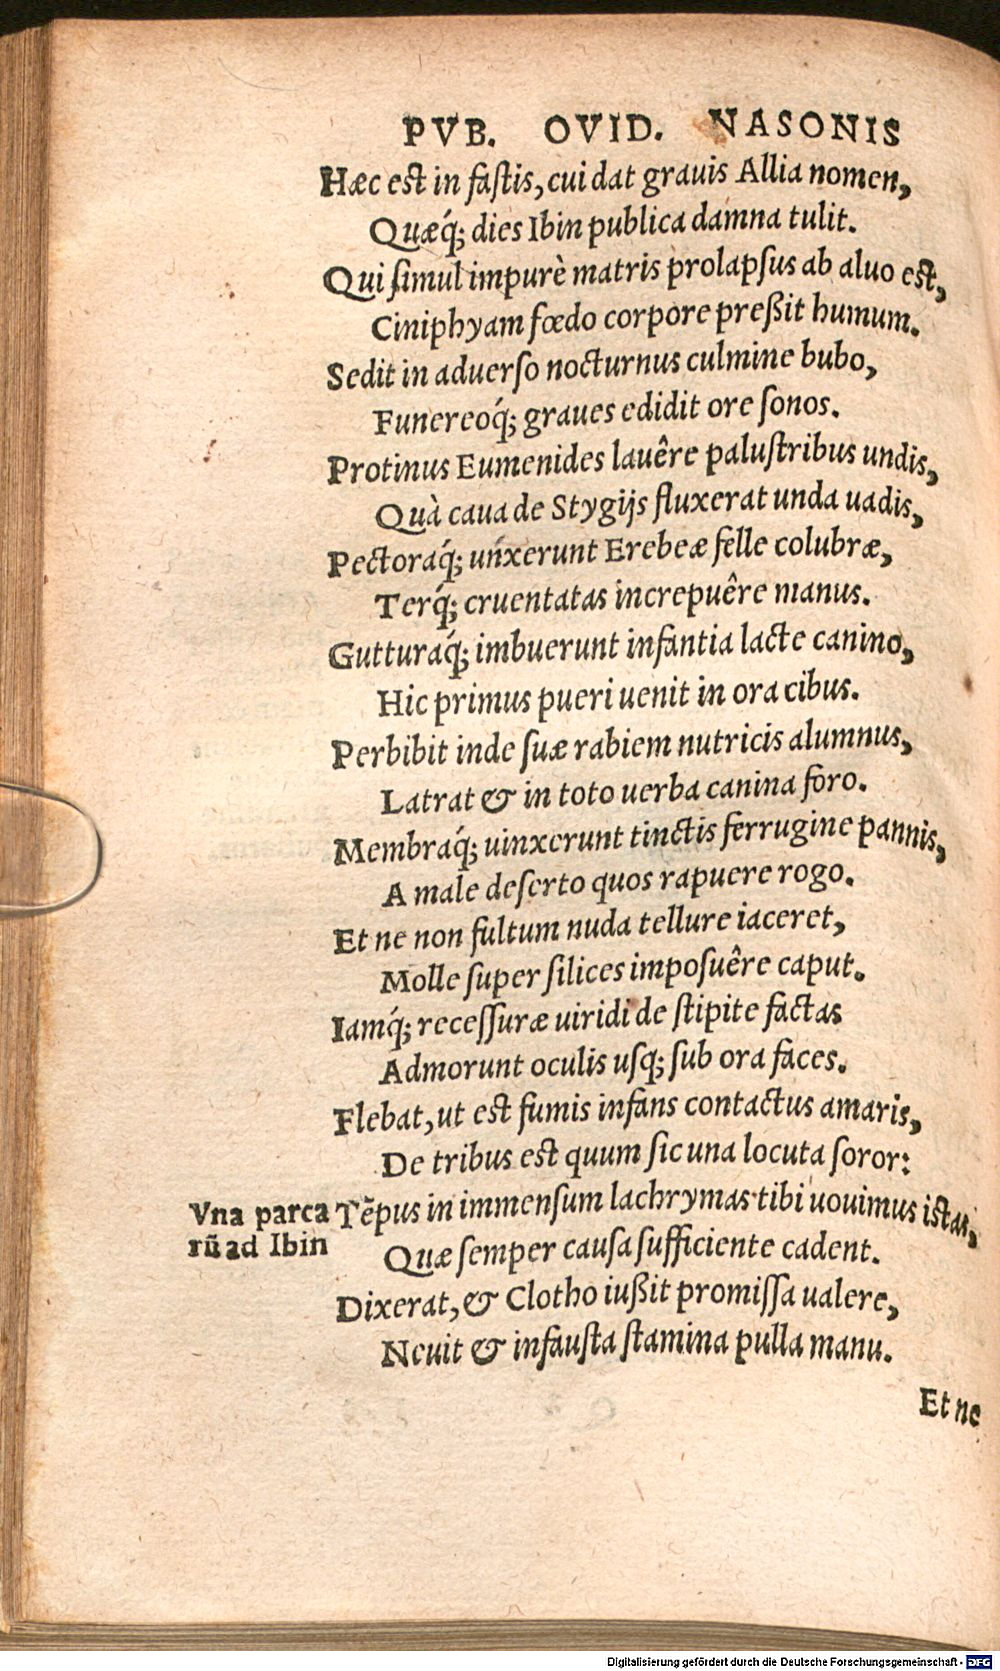 PVB. OVID. NASONIS
Hæc est in fastis, cui dat grauis Allia nomen,
Quæq́; dies Ibin publica damna tulit.
Qui simul impurè matris prolapsus ab aluo est,
Ciniphyam fœdo corpore preßit humum.
Sedit in aduerso nocturnus culmine bubo,
Funereoq́; graues edidit ore sonos.
Protinus Eumenides lauêre palustribus undis,
Quà caua de Stygijs fluxerat unda uadis,
Pectoraq́; unxerunt Erebeæ felle colubræ,
Terq́; cruentatas increpuêre manus.
Gutturaq́; imbuerunt infantia lacte canino,
Hic primus pueri uenit in ora cibus.
Perbibit inde suæ rabiem nutricis alumnus,
Latrat & in toto uerba canina foro.
Membraq́; uinxerunt tinctis ferrugine pannis,
A male deserto quos rapuere rogo.
Et ne non fultum nuda tellure iaceret,
Molle super silices imposuêre caput.
Iamq́; recessuræ uiridi de stipite factas
Admorunt oculis usq; sub ora faces.
Flebat, ut est fumis infans contactus amaris,
De tribus est quum sic una locuta soror:
Vna parca
rũ ad Ibin
Tẽpus in immensum lachrymas tibi uouimus istas,
Quæ semper causa sufficiente cadent.
Dixerat, & Clotho iußit promissa ualere,
Neuit & infausta stamina pulla manu.
Et ne
Digitalisierung gefördert durch die Deutsche Forschungsgemeinschaft - DFG